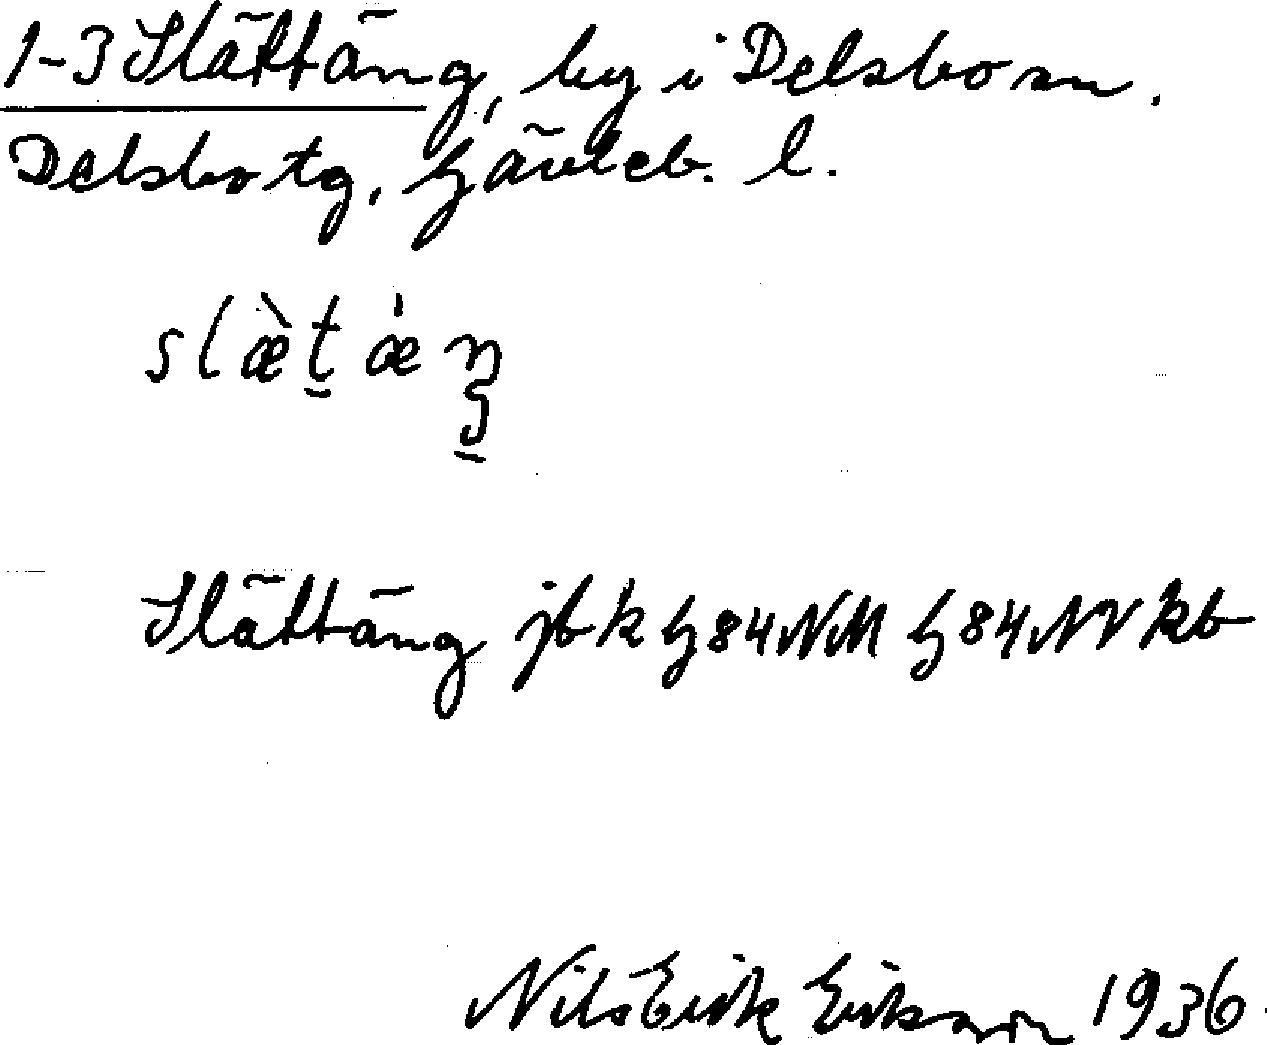 1-3 Slättäng, by i Delsbo sn.
Delsbo tg, Gävleb. l.
slæ̀t̠ æ̍ŋ̠
Slättäng jb k G84NM G84NV kb
Nils Erik Erikson 1936.